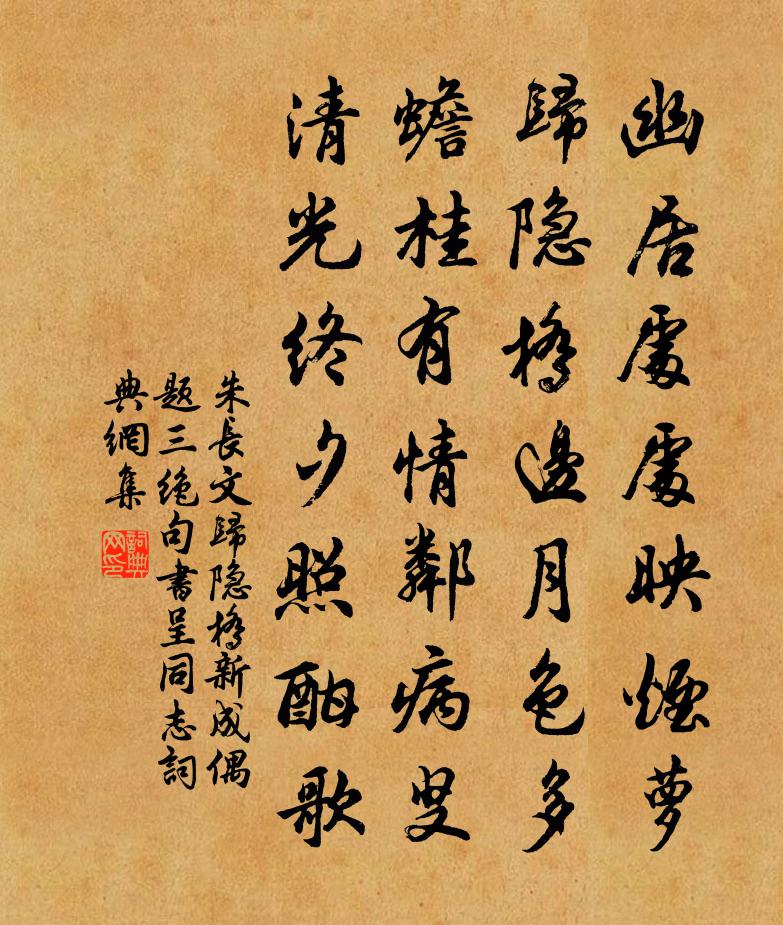 幽居處處映煙蘿
歸隐橋邊月色多
蟾桂有情鄰病叟
清光終夕照酣歌
朱長文歸隐橋新成偶
題三絶句書呈同志詞
典網集
詞典网印